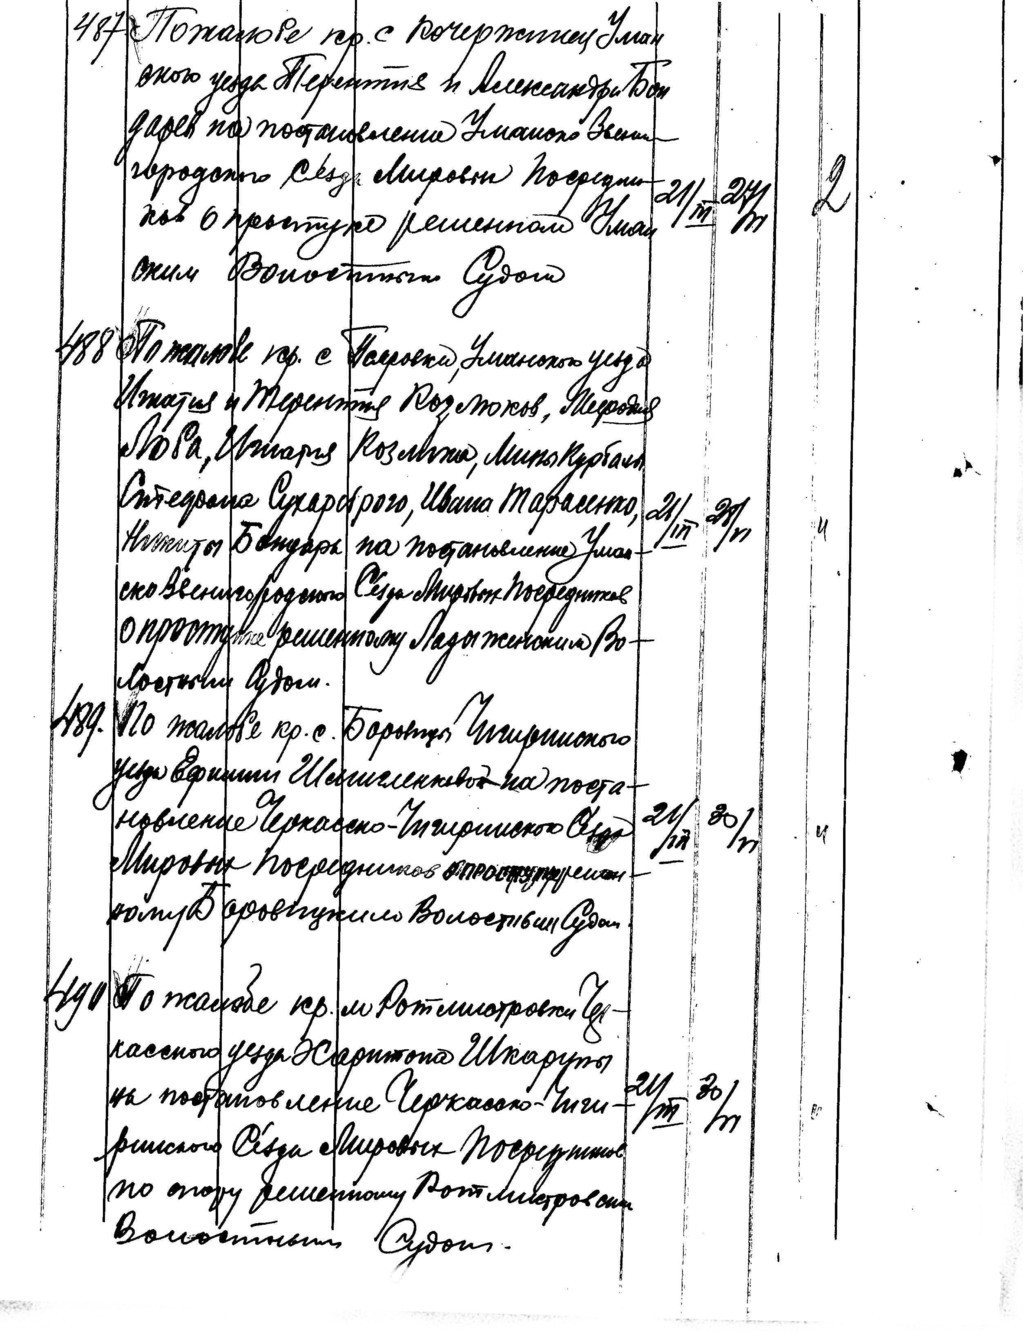 487 По жалобе кр. с Кочержинец Уман
ского уезда Терентия и Александры Бон
дарев на постановление Уманско Звени
городского Съезда Мировых Посредни-
ков о проступке решенном Уман 21/III 27/VI 2
ским Волостным Судом
488 По жалобе кр. с. Уманского уезда
Игнатия и Терентия Козлюков, Мефодия
Лова, Игнатия Козлюка, Мины
Сухареброго, Ивана Тарасенко, 21/III 28/VI "
Никиты Бондаря на постановление Уман-
ско Звенигородского Съезда Мировых Посредников
о проступке решенному Ладыженским Во-
лостным Судом.
489. По жалобе кр. с. Боровицы Чигиринского
уезда на поста-
новление Черкасско-Чигиринского Съезда 21/III 30/VI "
Мировых Посредников о проступке решен-
ному Боровицким Волостным Судом.
490 По жалобе кр. м Ротмистровки Чер-
касского уезда Харитона Шкарупы
на постановление Черкасско-Чиги- 21/III 30/VI "
ринского Съезда Мировых Посредников
по спору решенному Ротмистровским
Волостным Судом.